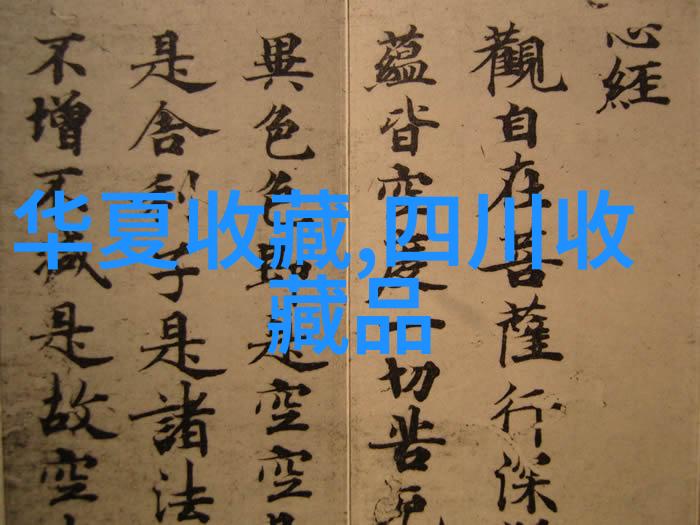 心經
觀自在菩薩行深
蘊皆空度一切苦厄
異色色即是空空是
是舍利子是諸法
不增不減是故空
华夏收藏,四川收
藏品